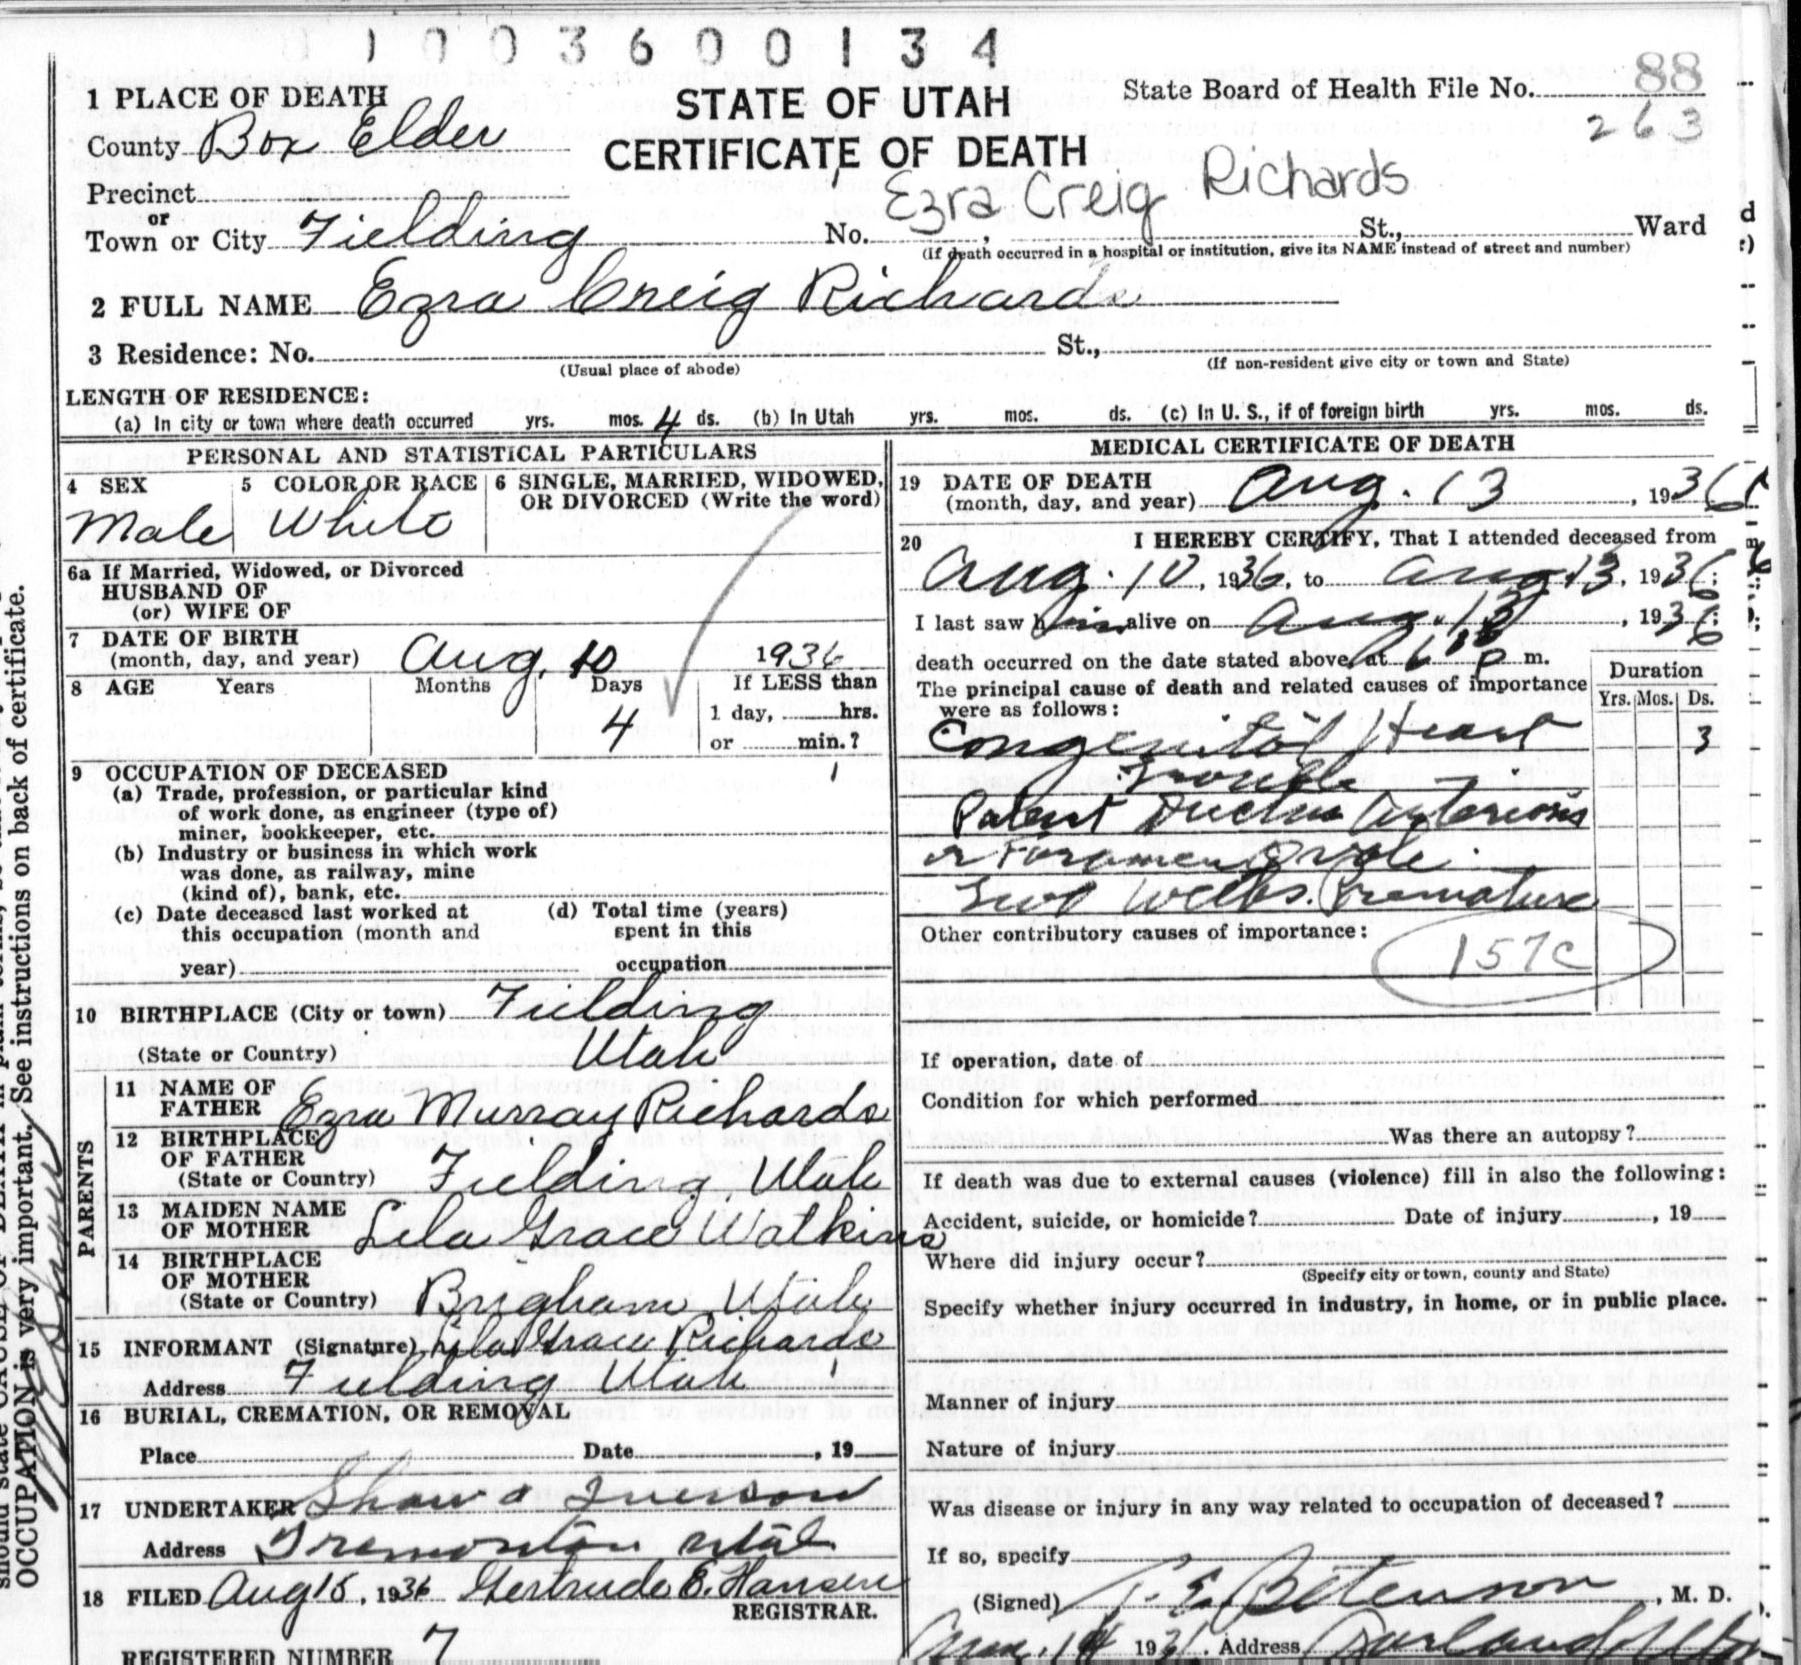 1003600134
1 PLACE OF DEATH
STATE OF UTAH
State Board of Health File No. 88
263
County Box Elder
CERTIFICATE OF DEATH
Precinct
Ezra Creig Richards
or
Town or City Fielding No. St., Ward
(If death occurred in a hospital or institution, give its NAME instead of street and number)
2 FULL NAME Ezra Creig Richards
3 Residence: No. St.,
(Usual place of abode) (If non-resident give city or town and State)
LENGTH OF RESIDENCE:
(a) In city or town where death occurred yrs. mos. 4 ds. (b) In Utah yrs. mos. ds. (c) In U. S., if of foreign birth yrs. mos. ds.
PERSONAL AND STATISTICAL PARTICULARS
4 SEX 5 COLOR OR RACE 6 SINGLE, MARRIED, WIDOWED,
OR DIVORCED (Write the word)
Male White
6a If Married, Widowed, or Divorced
HUSBAND OF
(or) WIFE OF
7 DATE OF BIRTH
(month, day, and year) Aug. 10 1936
8 AGE Years Months Days If LESS than
4 1 day, hrs.
or min.?
9 OCCUPATION OF DECEASED
(a) Trade, profession, or particular kind
of work done, as engineer (type of)
miner, bookkeeper, etc.
(b) Industry or business in which work
was done, as railway, mine
(kind of), bank, etc.
(c) Date deceased last worked at (d) Total time (years)
this occupation (month and spent in this
year) occupation
10 BIRTHPLACE (City or town) Fielding
(State or Country) Utah
PARENTS
11 NAME OF
FATHER Ezra Murray Richards
12 BIRTHPLACE
OF FATHER
(State or Country) Fielding, Utah
13 MAIDEN NAME
OF MOTHER Lela Grace Watkins
14 BIRTHPLACE
OF MOTHER
(State or Country) Brigham, Utah
15 INFORMANT (Signature) Lela Grace Richards
Address Fielding Utah
16 BURIAL, CREMATION, OR REMOVAL
Place Date , 19
17 UNDERTAKER Shaw & Iverson
Address Tremonton Utah
18 FILED Aug 15, 1936 Gertrude E. Hansen
REGISTRAR.
REGISTERED NUMBER 7
MEDICAL CERTIFICATE OF DEATH
19 DATE OF DEATH
(month, day, and year) Aug. 13 , 1936
20 I HEREBY CERTIFY, That I attended deceased from
Aug. 10, 1936, to Aug 13, 1936;
I last saw him alive on Aug. 13 , 1936;
death occurred on the date stated above, at 6 p m.
The principal cause of death and related causes of importance
were as follows:
Duration
Yrs. Mos. Ds.
Congenital Heart 3
Trouble
Patent Ductus Arteriosis
or Foramen Ovale.
Two Weeks Premature
Other contributory causes of importance:
157c
If operation, date of
Condition for which performed
Was there an autopsy?
If death was due to external causes (violence) fill in also the following:
Accident, suicide, or homicide? Date of injury , 19
Where did injury occur?
(Specify city or town, county and State)
Specify whether injury occurred in industry, in home, or in public place.
Manner of injury
Nature of injury
Was disease or injury in any way related to occupation of deceased?
If so, specify
(Signed) Peterson , M. D.
Aug. 14 1936. Address Garland Utah
OCCUPATION is very important. See instructions on back of certificate.